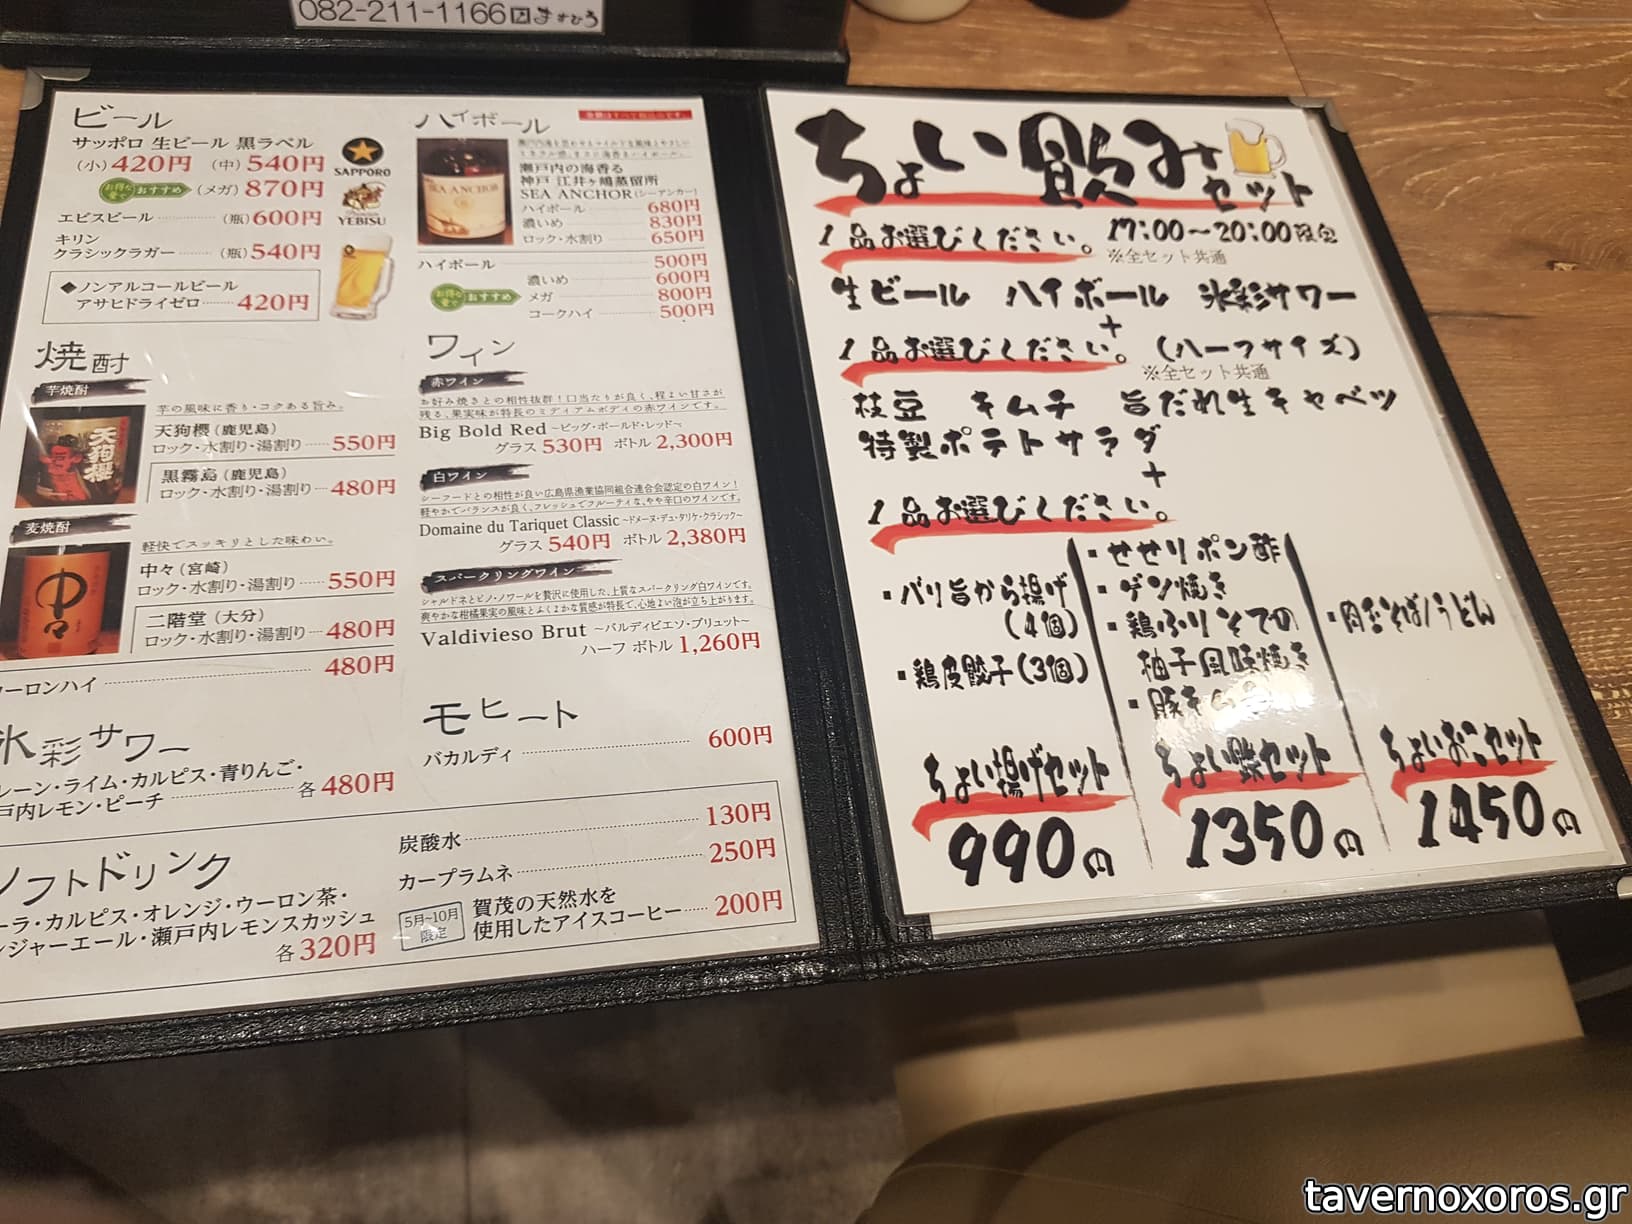 082-211-1166
ビール
サッポロ 生ビール 黒ラベル
(小) 420円 (中) 540円
お得な量で おすすめ (メガ) 870円
SAPPORO
エビスビール (瓶) 600円
YEBISU
キリン
クラシックラガー (瓶) 540円
◆ノンアルコールビール
アサヒドライゼロ 420円
焼酎
芋焼酎
芋の風味に香り・コクある旨み。
天狗櫻 (鹿児島)
ロック・水割り・湯割り 550円
黒霧島 (鹿児島)
ロック・水割り・湯割り 480円
天狗櫻
麦焼酎
軽快でスッキリとした味わい。
中々 (宮崎)
ロック・水割り・湯割り 550円
二階堂 (大分)
ロック・水割り・湯割り 480円
中々
ーロンハイ 480円
氷彩サワー
レーン・ライム・カルピス・青りんご・
戸内レモン・ピーチ 各480円
ソフトドリンク
ーラ・カルピス・オレンジ・ウーロン茶・
ンジャーエール・瀬戸内レモンスカッシュ
各320円
ハイボール
瀬戸内の海香る
神戸 江井ヶ嶋蒸留所
SEA ANCHOR (シーアンカー)
SEA ANCHOR
ハイボール 680円
濃いめ 830円
ロック・水割り 650円
ハイボール 500円
濃いめ 600円
お得な量で おすすめ メガ 800円
コークハイ 500円
ワイン
赤ワイン
お好み焼きとの相性抜群！口当たりが良く、程よい甘さが
残る、果実味が特長のミディアムボディの赤ワインです。
Big Bold Red ~ビッグ・ボールド・レッド~
グラス 530円 ボトル 2,300円
白ワイン
シーフードとの相性が良い広島県漁業協同組合連合会認定の白ワイン！
軽やかでバランスが良く、フレッシュでフルーティな、やや辛口のワインです。
Domaine du Tariquet Classic ~ドメーヌ・デュ・タリケ・クラシック~
グラス 540円 ボトル 2,380円
スパークリングワイン
シャルドネとピノ・ノワールを贅沢に使用した、上質なスパークリング白ワインです。
爽やかな柑橘果実の風味とふくよかな質感が特長で、心地よい泡が立ち上がります。
Valdivieso Brut ~バルディビエソ・ブリュット~
ハーフ ボトル 1,260円
モヒート
バカルディ 600円
炭酸水 130円
カープラムネ 250円
5月~10月
限定
賀茂の天然水を
使用したアイスコーヒー 200円
ちょい飲みセット
1品お選びください。 17:00～20:00限定
※全セット共通
生ビール ハイボール 氷彩サワー
+
1品お選びください。 (ハーフサイズ)
※全セット共通
枝豆 キムチ 旨だれ生キャベツ
特製ポテトサラダ
+
1品お選びください。
・バリ旨から揚げ
(4個)
・鶏皮餃子(3個)
ちょい揚げセット
990円
・せせりポン酢
・ゲソ焼き
・鶏ふりそでの
柚子風味焼き
ちょい鉄セット
1350円
・肉玉そば/うどん
ちょいおこセット
1450円
tavernoxoros.gr